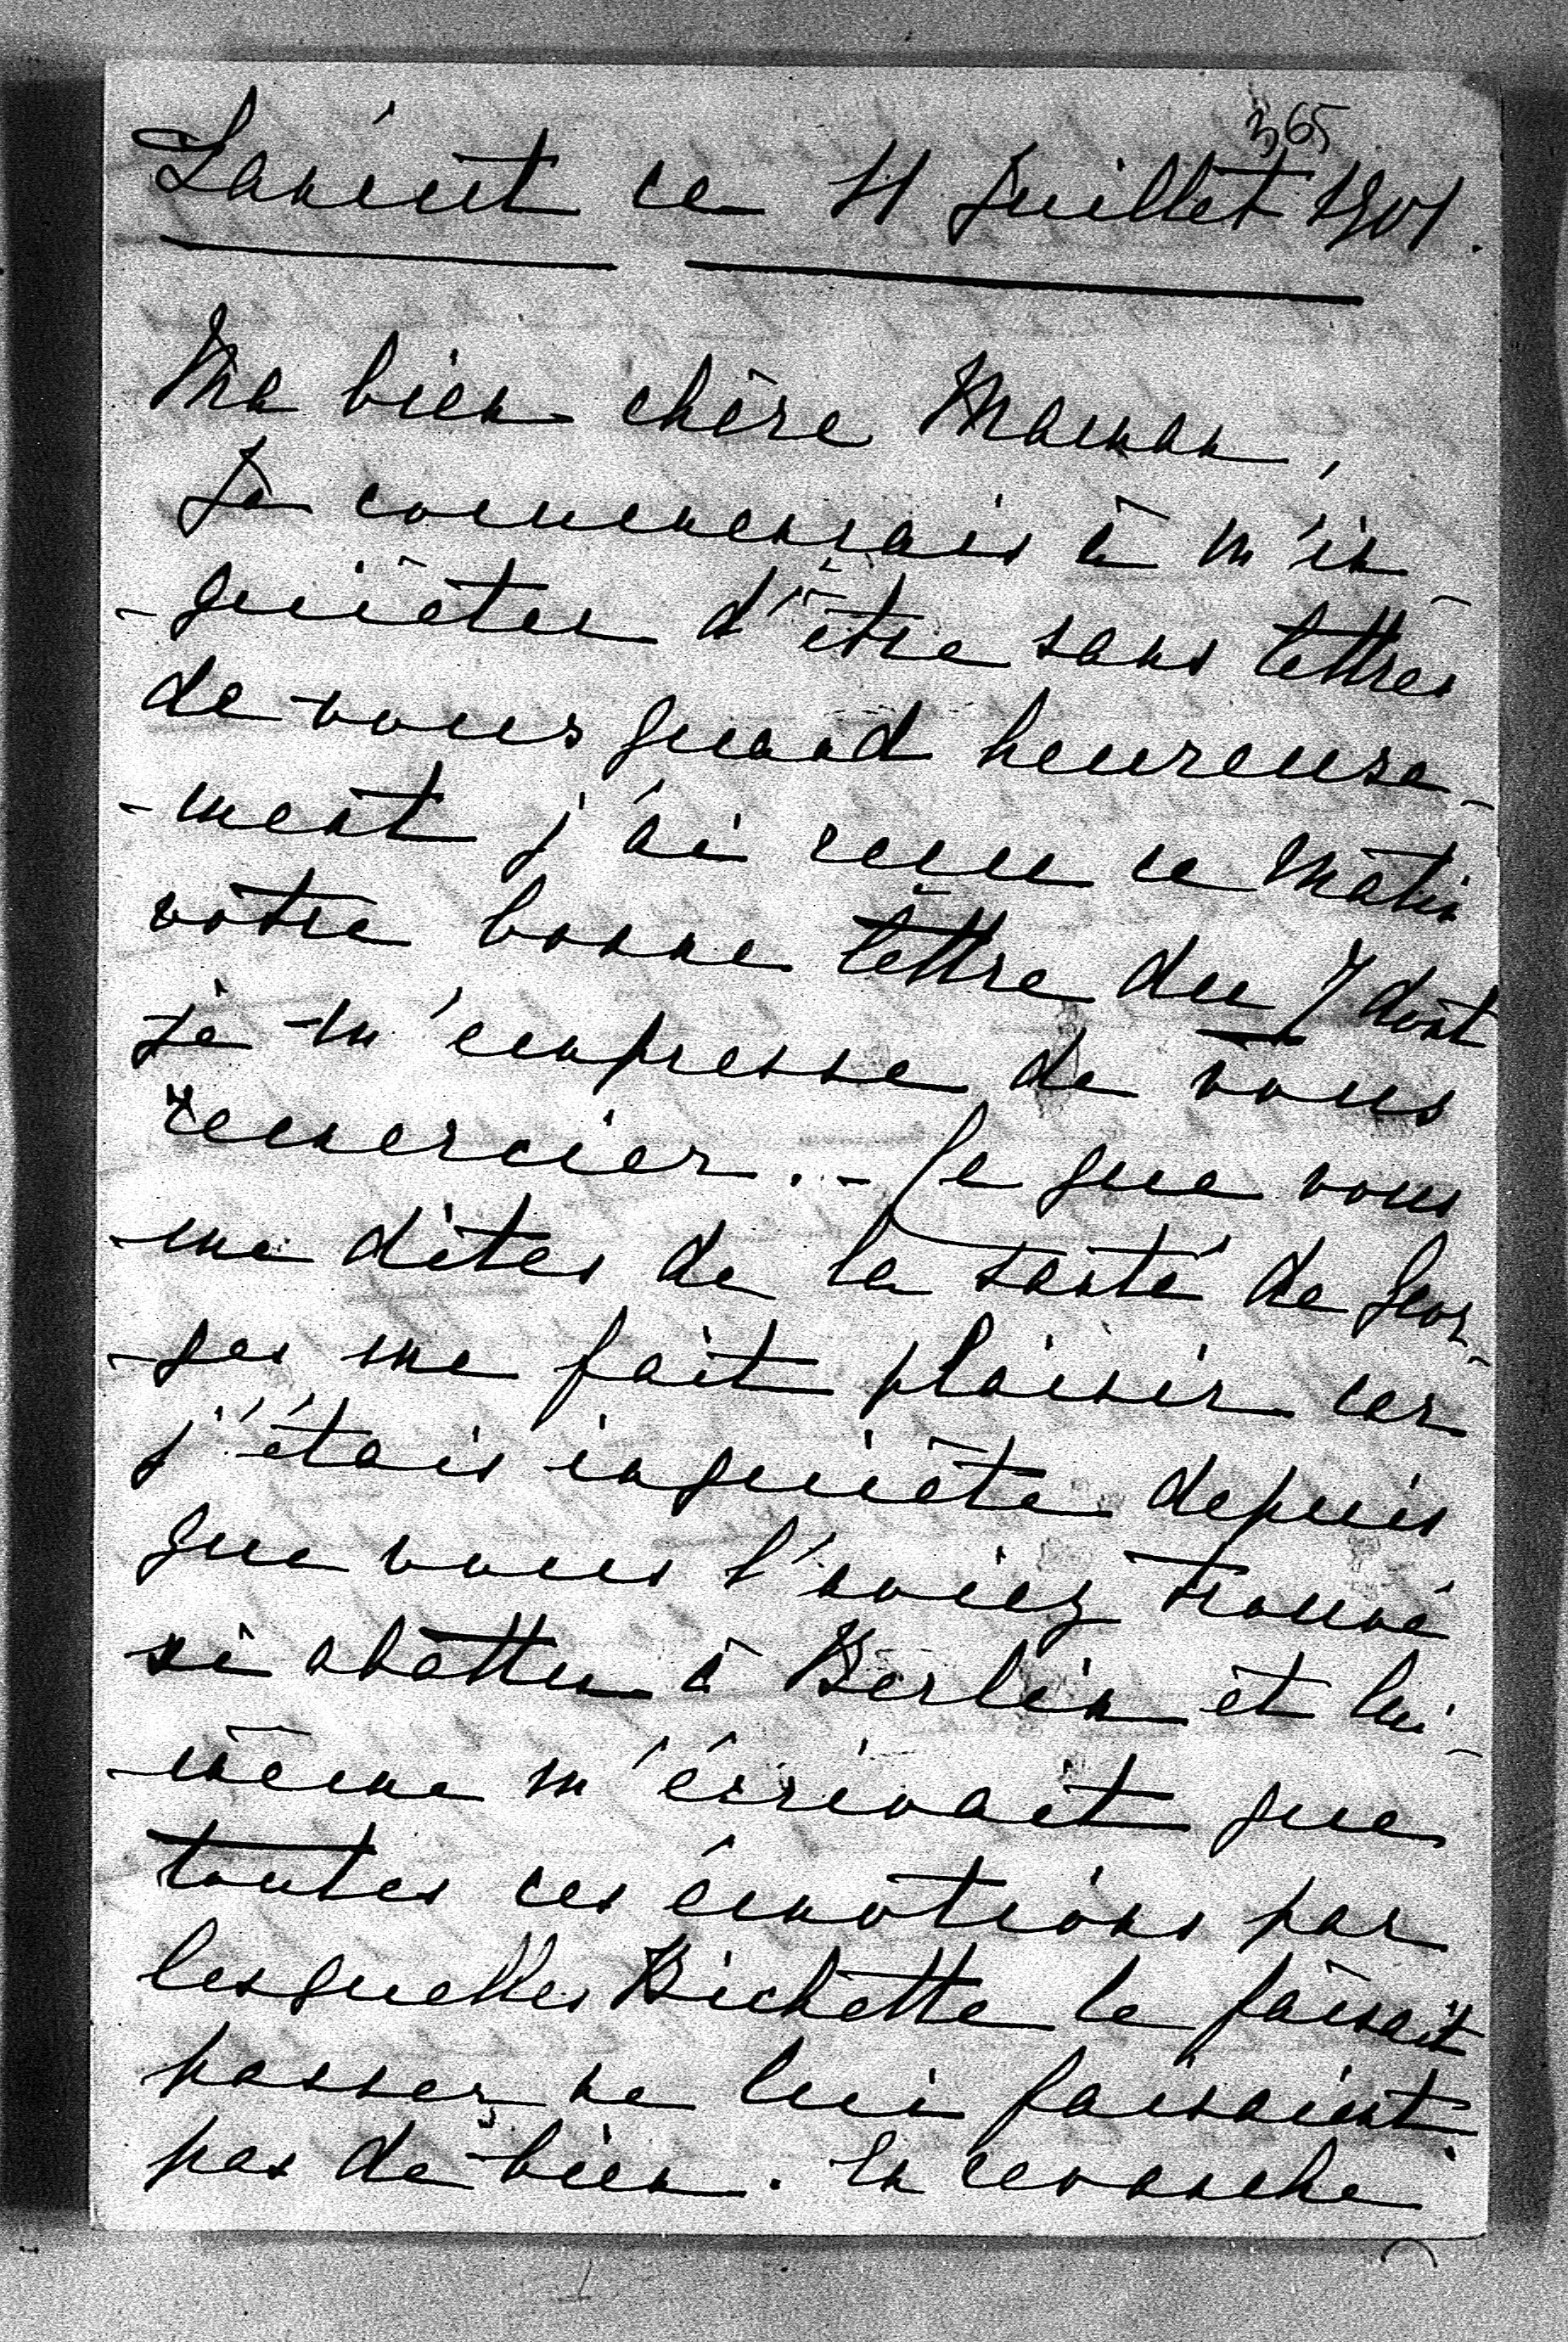 365
Lorient ce 11 Juillet 1901.
Ma bien chère Maman,
Je commençais à m'in
-quiéter d'être sans lettres
de vous quand heureuse-
-ment j'ai reçu ce matin
votre bonne lettre du 7 dont
je m'empresse de vous
remercier. - Ce que vous
me dites de la santé de Geor-
-ges me fait plaisir car
j'étais inquiète depuis
que vous l'aviez trouvé
si abattu à Berlin et lui-
-même m'écrivait que
toutes ces émotions par
lesquelles Bichette le faisait
passer ne lui faisaient
pas de bien. En revanche